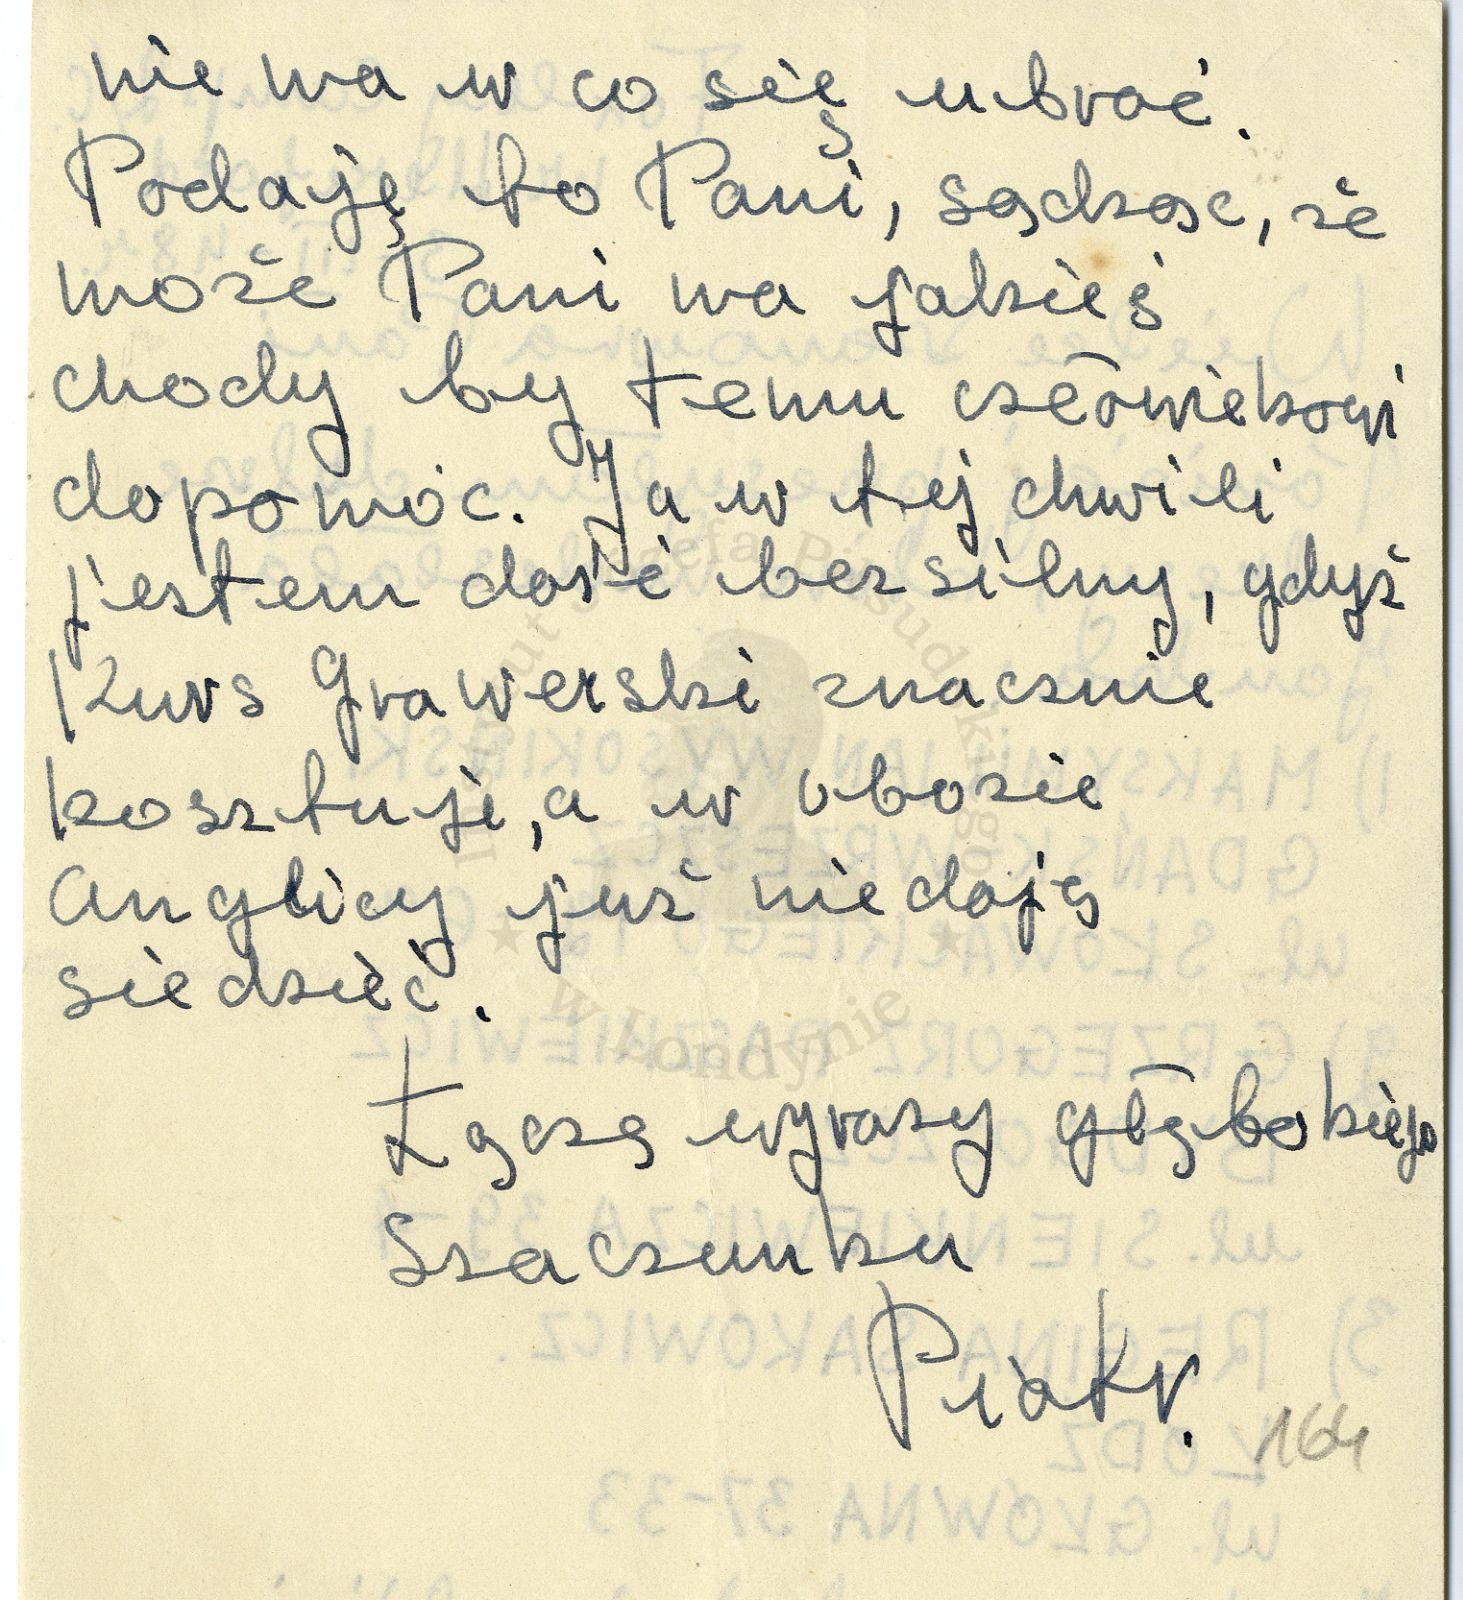 nie ma w co się ubrać.
Podaję to Pani, sądząc, że
może Pani ma jakieś
chody by temu człowiekowi
dopomóc. Ja w tej chwili
jestem dość bezsilny, gdyż
Kurs Grawerski znacznie
kosztuje, a w obozie
Anglicy już niedają
siedzieć.
Łączę wyrazy głębokiego
Szacunku
Piotr.
164
Instytut Józefa Piłsudskiego
w Londynie